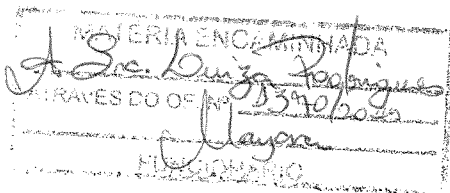 MATÉRIA ENCAMINHADA
A Sra. Luiza Rodrigues
ATRAVÉS DO OF. Nº
Mayara
FUNCIONÁRIO